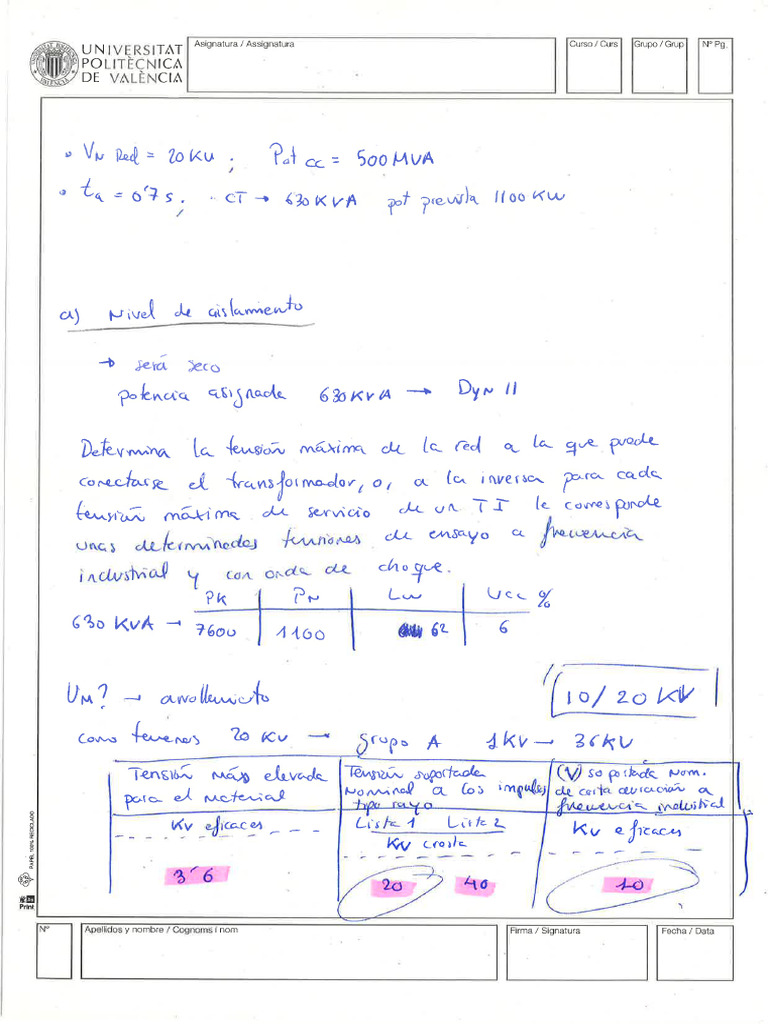 UNIVERSITAT
POLITÈCNICA
DE VALÈNCIA
Asignatura / Assignatura
Curso / Curs
Grupo / Grup
Nº Pg.
• VN Red = 20KV ; Pot cc = 500MVA
• ta = 0'7 s ; · CT → 630KVA pot prevista 1100 KW
a) Nivel de aislamiento
→ será seco
potencia asignada 630KVA → Dyn 11
Determina la tensión máxima de la red a la que puede
conectarse el transformador, o, a la inversa para cada
tensión máxima de servicio de un TI le corresponde
unas determinadas tensiones de ensayo a frecuencia
industrial y con onda de choque.
PK PN LW Ucc %
630 KVA → 7600 1100 62 6
UM? → arrollamiento
10/20 KV
como tenemos 20 KV → grupo A 1KV → 36KV
Tensión más elevada
para el material
KV eficaces
3'6
Tensión soportada
Nominal a los impulsos
tipo rayo
Lista 1 Lista 2
KV cresta
20 40
(V) soportada Nom.
de corta duración a
frecuencia industrial
KV eficaces
10
PAPEL 100% RECICLADO
Print
Nº
Apellidos y nombre / Cognoms i nom
Firma / Signatura
Fecha / Data